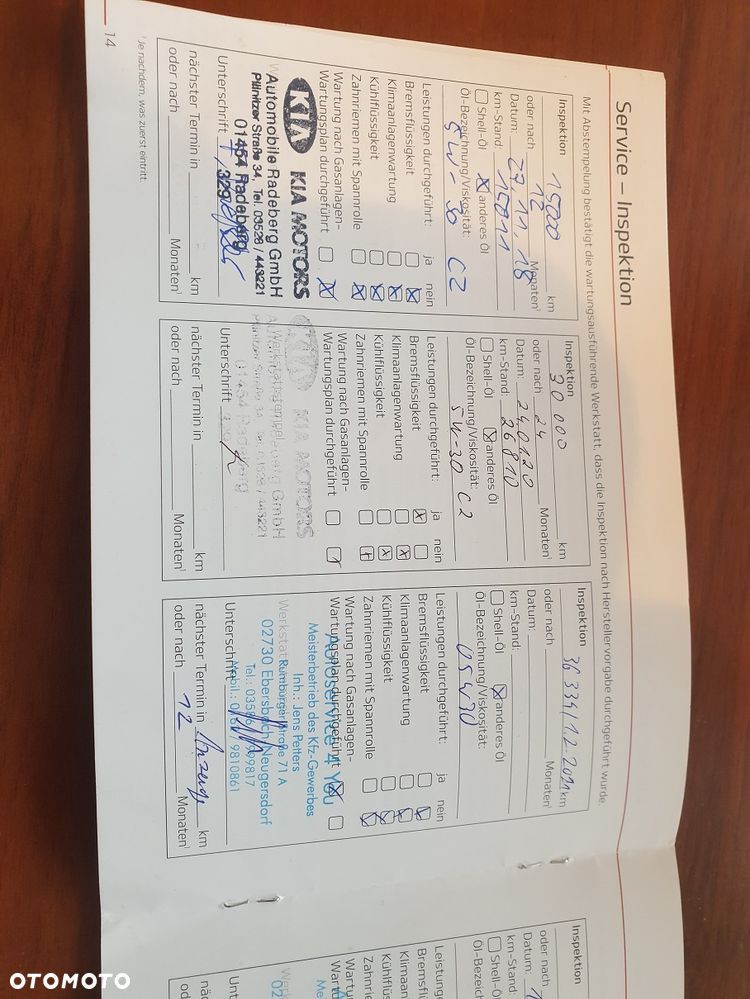 Service – Inspektion
Mit Abstempelung bestätigt die wartungsausführende Werkstatt, dass die Inspektion nach Herstellervorgabe durchgeführt wurde.
Inspektion 15000 km
oder nach 12 Monaten¹
Datum: 27.11.18
km-Stand: 15011
Shell-Öl anderes Öl
Öl-Bezeichnung/Viskosität:
5W-30 C2
Leistungen durchgeführt: ja nein
Bremsflüssigkeit
Klimaanlagenwartung
Kühlflüssigkeit
Zahnriemen mit Spannrolle
Wartung nach Gasanlagen-
Wartungsplan durchgeführt
KIA KIA MOTORS
Automobile Radeberg GmbH
Pillnitzer Straße 34, Tel. 03528 / 443221
01454 Radeberg
Unterschrift
nächster Termin in km
oder nach Monaten¹
Inspektion 30 000 km
oder nach 24 Monaten¹
Datum: 24.01.20
km-Stand: 26810
Shell-Öl anderes Öl
Öl-Bezeichnung/Viskosität:
5W-30 C2
Leistungen durchgeführt: ja nein
Bremsflüssigkeit
Klimaanlagenwartung
Kühlflüssigkeit
Zahnriemen mit Spannrolle
Wartung nach Gasanlagen-
Wartungsplan durchgeführt
KIA MOTORS
Werkstattstempel
Unterschrift
nächster Termin in km
oder nach Monaten¹
Inspektion 36 334/1.2.2021 km
oder nach Monaten¹
Datum:
km-Stand:
Shell-Öl anderes Öl
Öl-Bezeichnung/Viskosität:
05W30
Leistungen durchgeführt: ja nein
Bremsflüssigkeit
Klimaanlagenwartung
Kühlflüssigkeit
Zahnriemen mit Spannrolle
Wartung nach Gasanlagen-
Wartungsplan durchgeführt
Autoservice 4 You
Meisterbetrieb des Kfz-Gewerbes
Inh.: Jens Petters
Rumburger Straße 71 A
02730 Ebersbach-Neugersdorf
Unterschrift
nächster Termin in Anzeige km
oder nach 12 Monaten¹
¹ Je nachdem, was zuerst eintritt.
14
Inspektion
oder nach
Datum:
km-Stand:
Shell-Öl
Öl-Bezeich
Leistung
Bremsflü
Klimaan
Kühlflüs
Zahnrie
Wartu
Wart
OTOMOTO